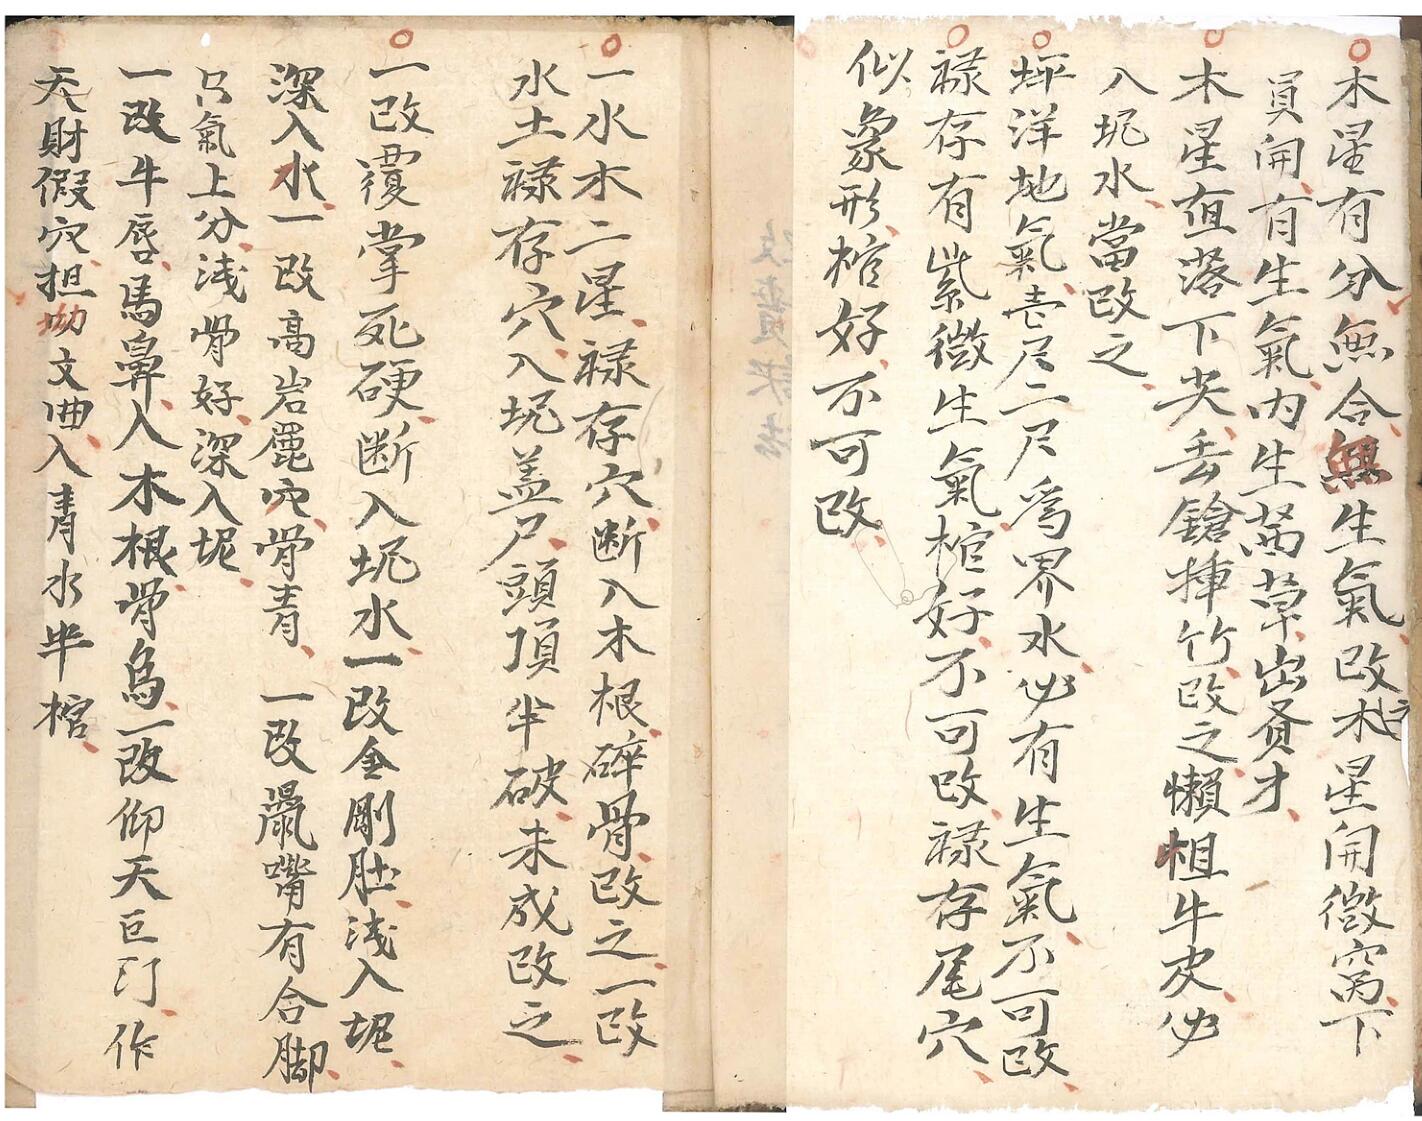 木星有分無合無生氣改之木星開微窩下
員開有生氣內生茜草出貢才
木星直落下尖丢鎗揷竹改之懶坦牛皮必
入坭水當改之
坪洋地氣壱尺二尺爲界水必有生氣不可改
禄存有紫微生氣棺好不可改禄存尾穴
似象形棺好不可改
一水木二星禄存穴断入木根碎骨改之一改
水土禄存穴入坭盖尸頭頂半破未成改之
一改覆掌死硬断入坭水一改金剛肚浅入坭
深入水一改高岩麗穴骨青一改鼠嘴有合脚
只氣上分浅骨好深入坭
一改牛唇馬鼻入木根骨烏一改仰天巨門作
天財假穴担㘭文曲入青水半棺